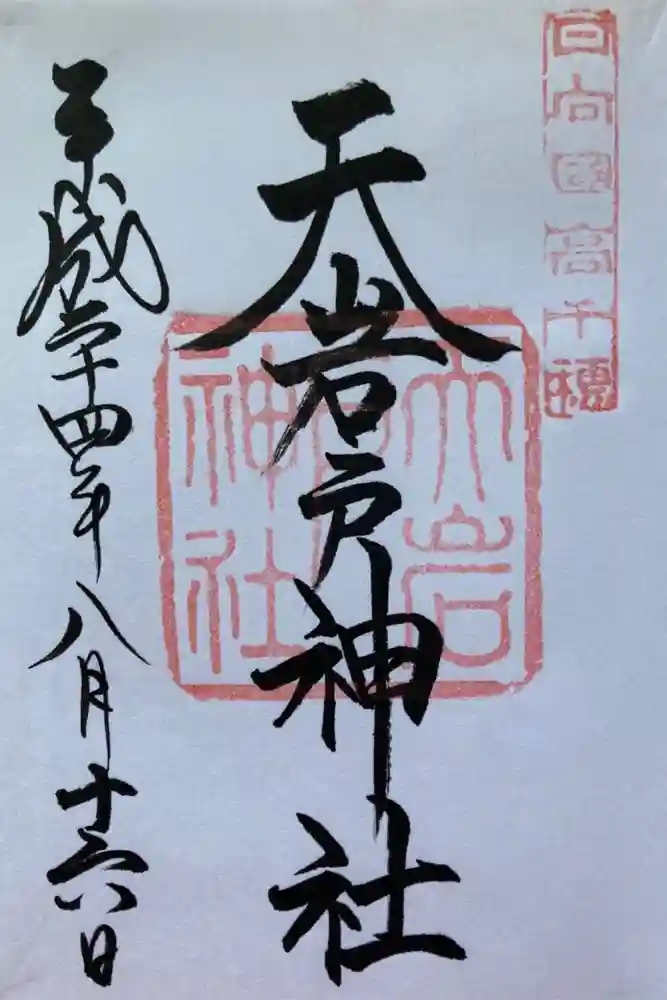 日向國高千穂
天岩戸神社
天岩戸神社
平成二十四年八月十六日